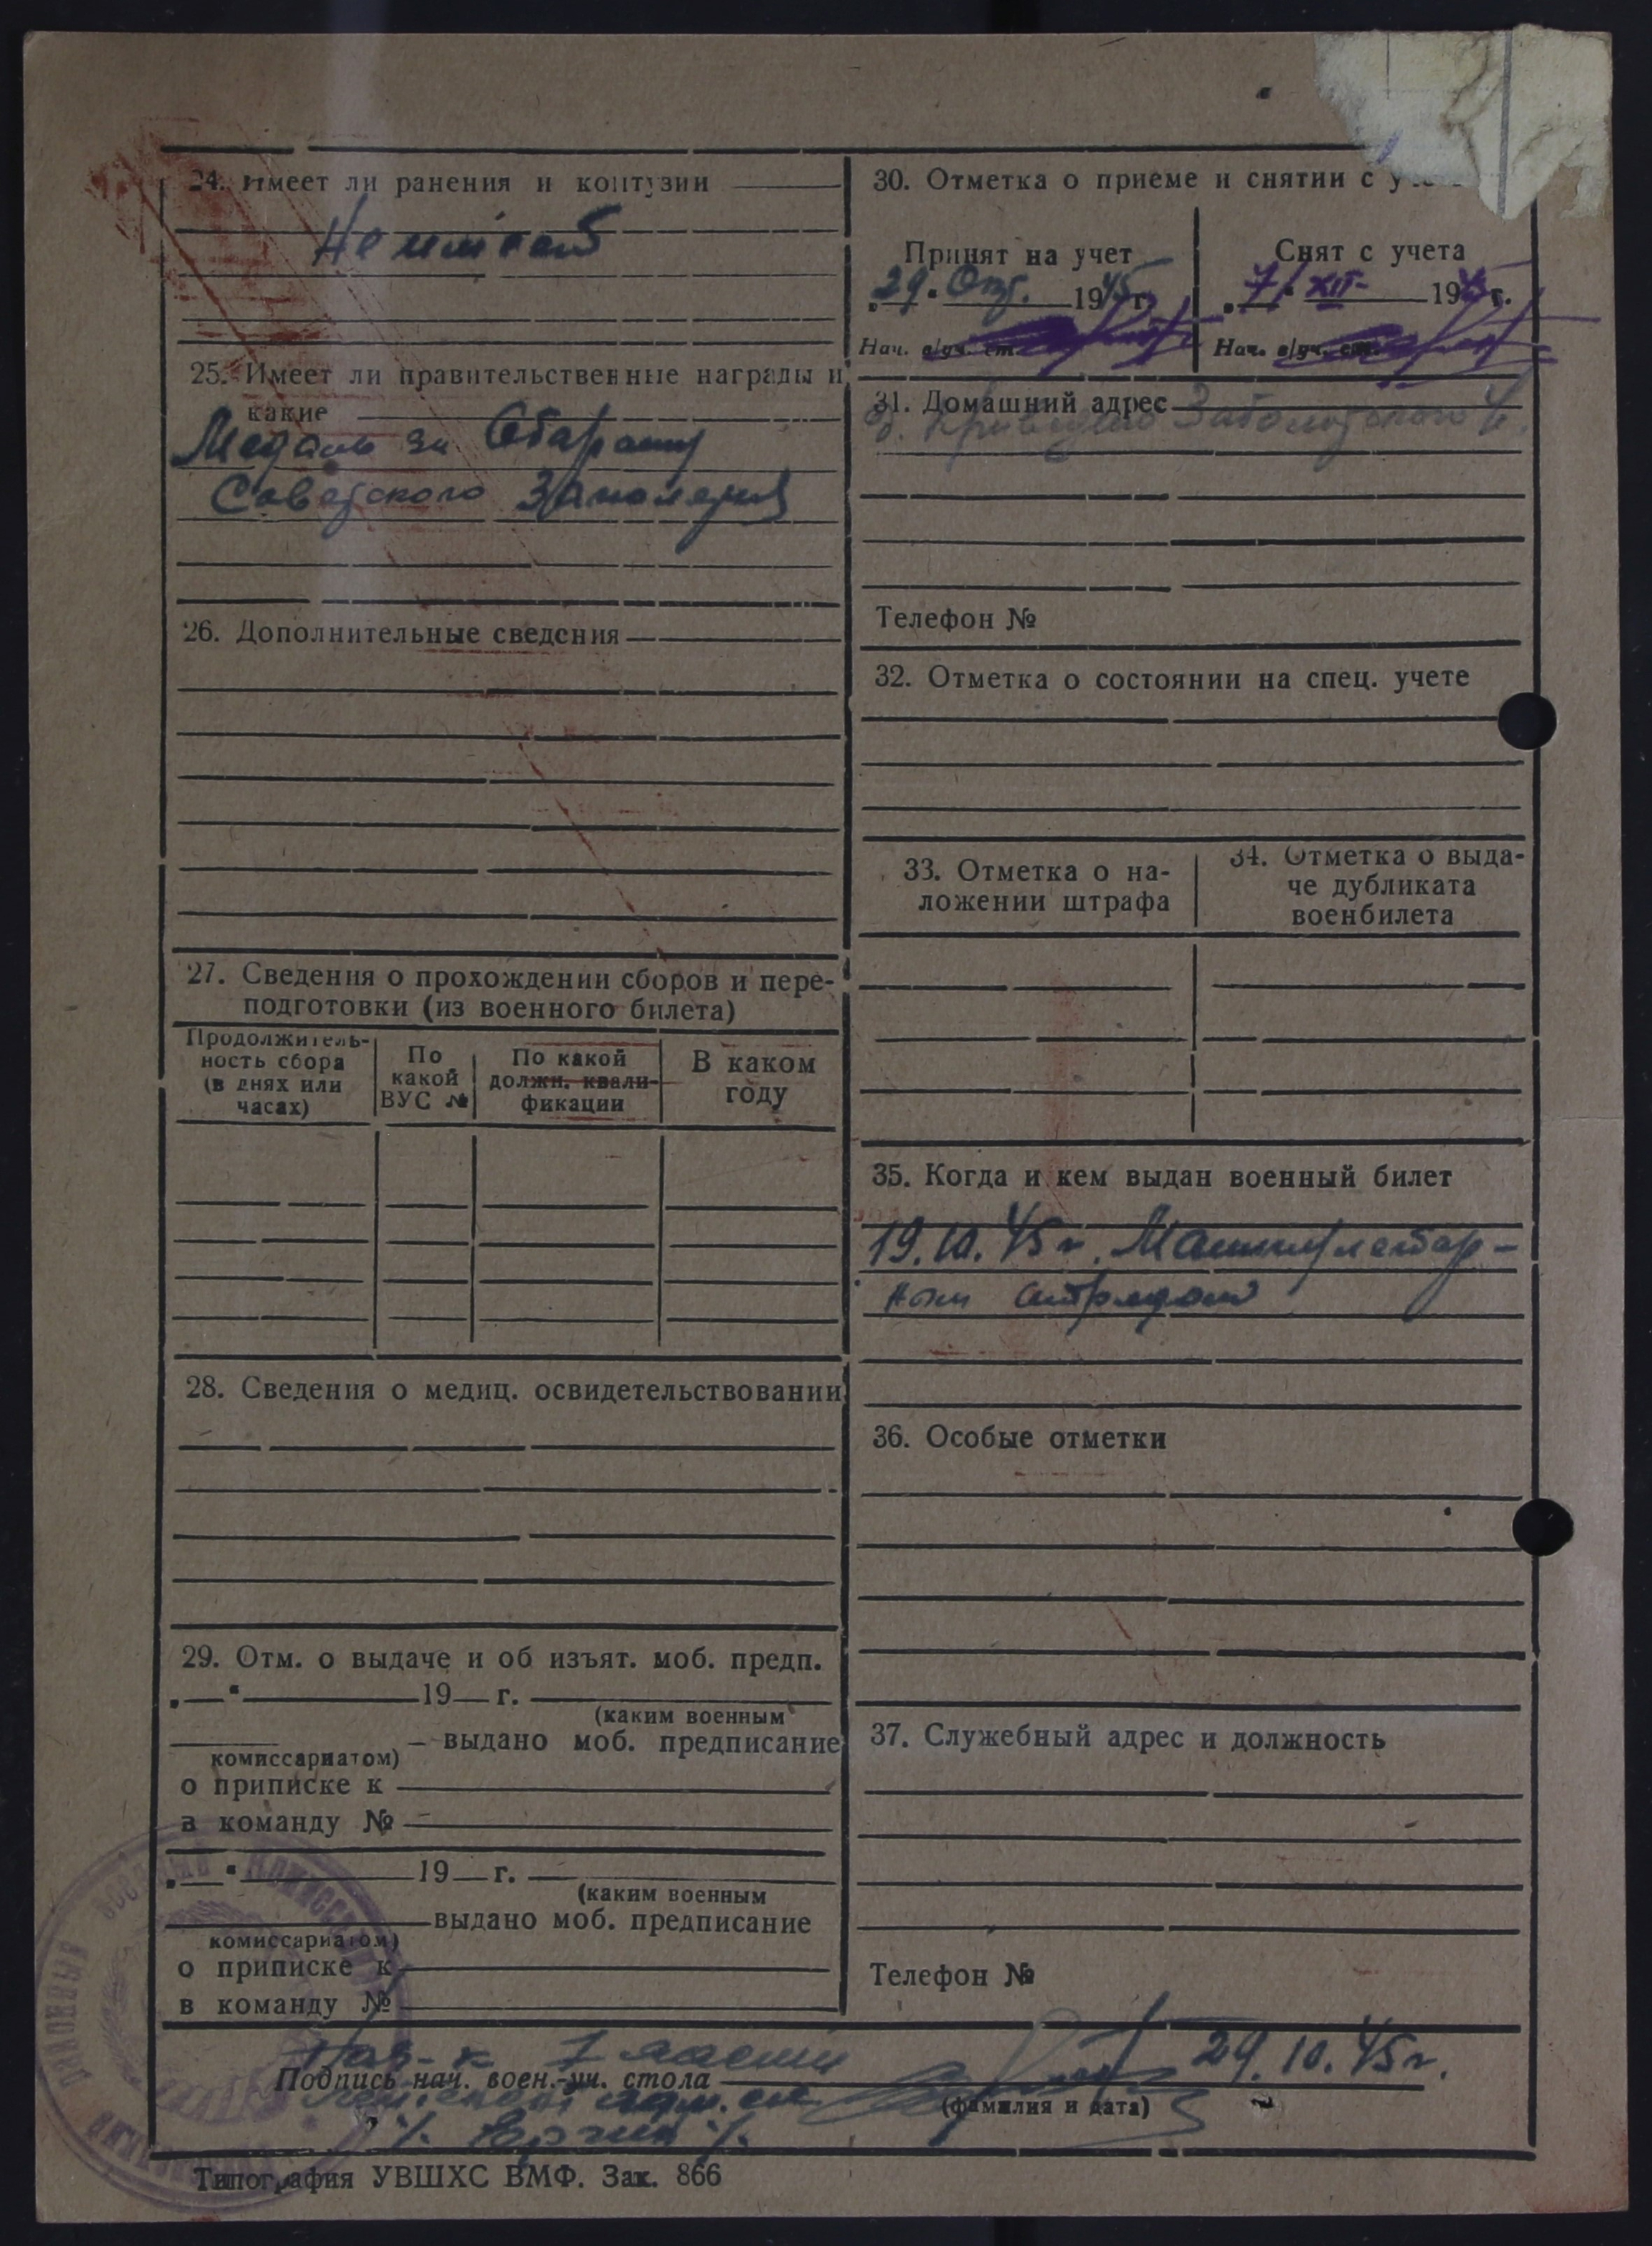 24. Имеет ли ранения и контузии
Не имеет
25. Имеет ли правительственные награды и
какие
Медаль за Обарону
Советского Заполярия
26. Дополнительные сведения
27. Сведения о прохождении сборов и пере-
подготовки (из военного билета)
Продолжитель-
ность сбора
(в днях или
часах)
По
какой
ВУС №
По какой
должн. квали-
фикации
В каком
году
28. Сведения о медиц. освидетельствовании
29. Отм. о выдаче и об изъят. моб. предп.
„ “ 19 г.
(каким военным
выдано моб. предписание
комиссариатом)
о приписке к
в команду №
„ “ 19 г.
(каким военным
выдано моб. предписание
комиссариатом)
о приписке к
в команду №
30. Отметка о приеме и снятии с
Принят на учет
„29“ Окт. 1945 г.
Нач. в/уч. ст.
Снят с учета
„7/“ XII- 1945 г.
Нач. в/уч. ст.
31. Домашний адрес
Телефон №
32. Отметка о состоянии на спец. учете
33. Отметка о на-
ложении штрафа
34. Отметка о выда-
че дубликата
военбилета
35. Когда и кем выдан военный билет
19.10.45г.
ным отрядом
36. Особые отметки
37. Служебный адрес и должность
Телефон №
Нач-к 1 части
Подпись нач. воен.-уч. стола
29.10.45г.
(фамилия и дата)
Типография УВШХС ВМФ. Зак. 866